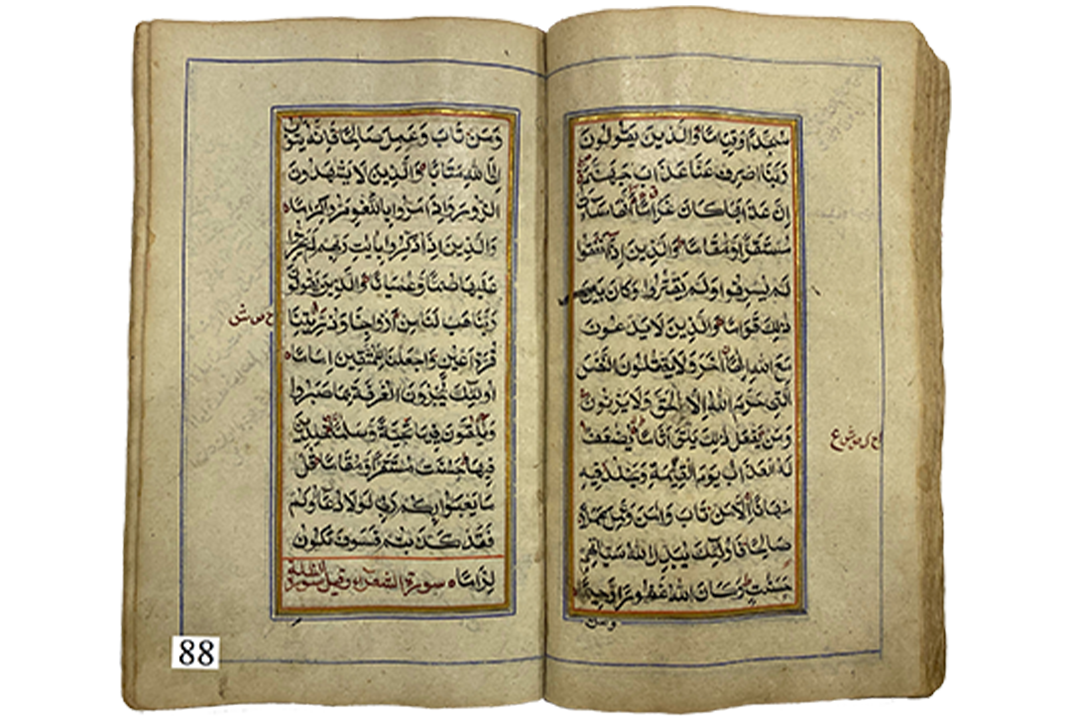 سُجَّدًا وَقِيَامًا وَالَّذِينَ يَقُولُونَ
رَبَّنَا اصْرِفْ عَنَّا عَذَابَ جَهَنَّمَ
إِنَّ عَذَابَهَا كَانَ غَرَامًا إِنَّهَا سَاءَتْ
مُسْتَقَرًّا وَمُقَامًا وَالَّذِينَ إِذَا أَنْفَقُوا
لَمْ يُسْرِفُوا وَلَمْ يَقْتُرُوا وَكَانَ بَيْنَ
ذَلِكَ قَوَامًا وَالَّذِينَ لَا يَدْعُونَ
مَعَ اللَّهِ إِلَهًا آخَرَ وَلَا يَقْتُلُونَ النَّفْسَ
الَّتِي حَرَّمَ اللَّهُ إِلَّا بِالْحَقِّ وَلَا يَزْنُونَ
وَمَنْ يَفْعَلْ ذَلِكَ يَلْقَ أَثَامًا يُضَعَفْ
لَهُ الْعَذَابُ يَوْمَ الْقِيَمَةِ وَيَخْلُدْ فِيهِ
مُهَانًا إِلَّا مَنْ تَابَ وَآمَنَ وَعَمِلَ عَمَلًا
صَالِحًا فَأُولَئِكَ يُبَدِّلُ اللَّهُ سَيِّئَاتِهِمْ
حَسَنَتٍ وَكَانَ اللَّهُ غَفُورًا رَحِيمًا
وَمَنْ
وَمَنْ تَابَ وَعَمِلَ صَالِحًا فَإِنَّهُ يَتُوبُ
إِلَى اللَّهِ مَتَابًا وَالَّذِينَ لَا يَشْهَدُونَ
الزُّورَ وَإِذَا مَرُّوا بِاللَّغْوِ مَرُّوا كِرَامًا
وَالَّذِينَ إِذَا ذُكِّرُوا بِآيَتِ رَبِّهِمْ لَمْ يَخِرُّوا
عَلَيْهَا صُمًّا وَعُمْيَانًا وَالَّذِينَ يَقُولُونَ
رَبَّنَا هَبْ لَنَا مِنْ أَزْوَاجِنَا وَذُرِّيَّتِنَا
قُرَّةَ أَعْيُنٍ وَاجْعَلْنَا لِلْمُتَّقِينَ إِمَامًا
أُولَئِكَ يُجْزَوْنَ الْغُرْفَةَ بِمَا صَبَرُوا
وَيُلَقَّوْنَ فِيهَا تَحِيَّةً وَسَلَمًا خَلِدِينَ
فِيهَا حَسُنَتْ مُسْتَقَرًّا وَمُقَامًا قُلْ
مَا يَعْبَؤُا بِكُمْ رَبِّي لَوْلَا دُعَاؤُكُمْ
فَقَدْ كَذَّبْتُمْ فَسَوْفَ يَكُونُ
لِزَامًا سورة الشعراء وقيل سورة
88